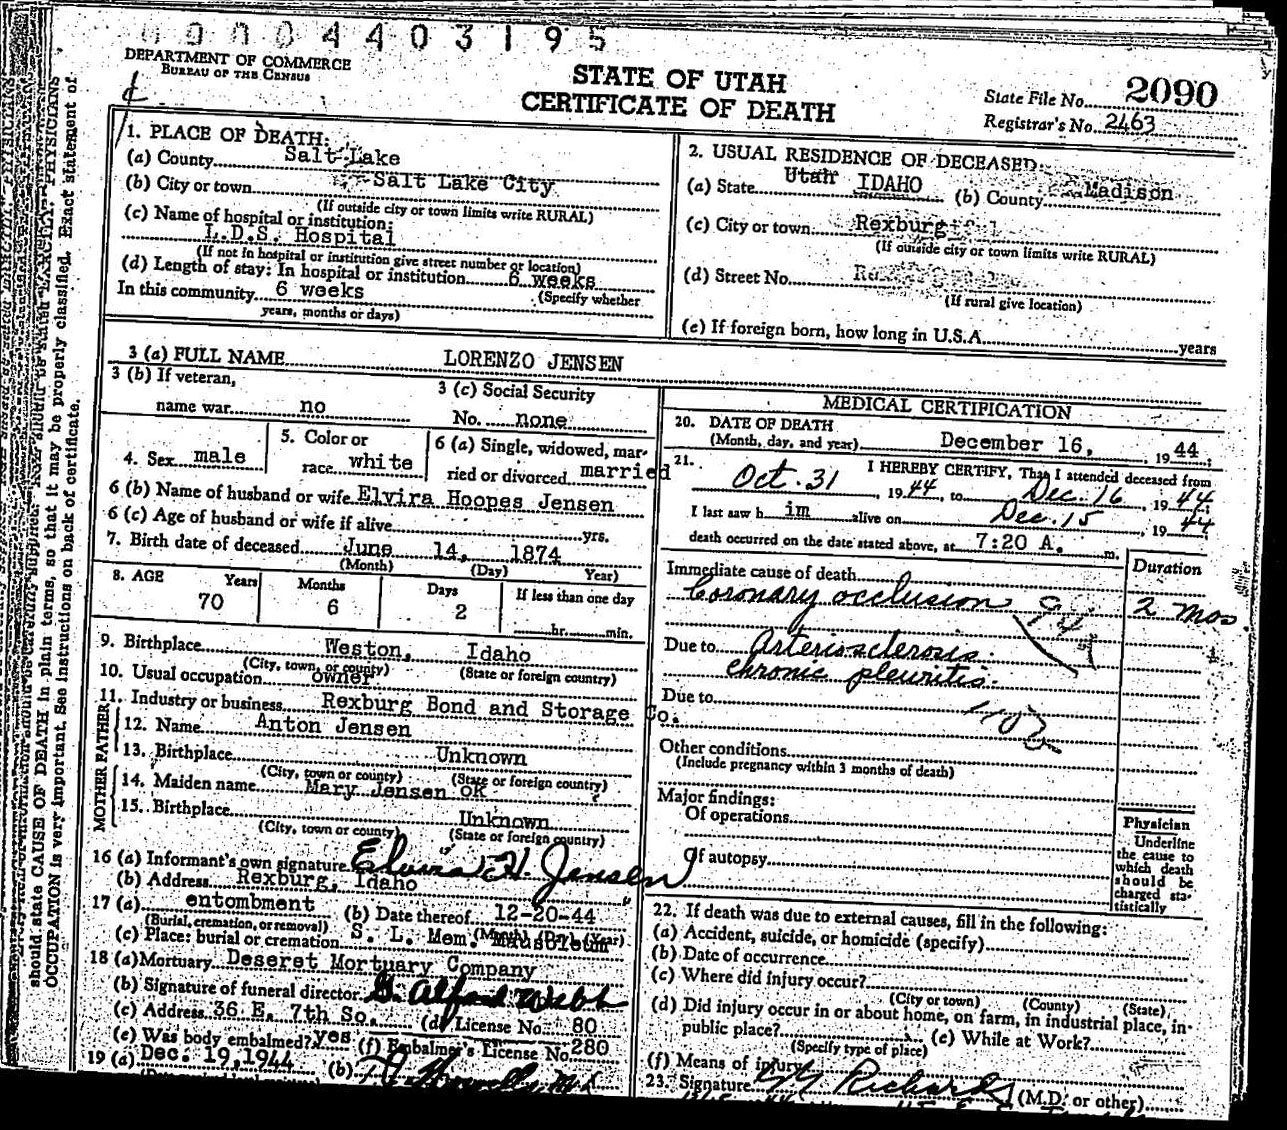 00004403195
DEPARTMENT OF COMMERCE
BUREAU OF THE CENSUS
STATE OF UTAH
CERTIFICATE OF DEATH
State File No. 2090
Registrar's No. 2463
1. PLACE OF DEATH:
(a) County Salt Lake
(b) City or town Salt Lake City
(If outside city or town limits write RURAL)
(c) Name of hospital or institution:
L.D.S. Hospital
(If not in hospital or institution give street number or location)
(d) Length of stay: In hospital or institution 6 weeks
In this community 6 weeks (Specify whether
years, months or days)
2. USUAL RESIDENCE OF DECEASED:
(a) State Utah IDAHO (b) County Madison
(c) City or town Rexburg
(If outside city or town limits write RURAL)
(d) Street No.
(If rural give location)
(e) If foreign born, how long in U.S.A. years
3 (a) FULL NAME LORENZO JENSEN
3 (b) If veteran,
name war no
3 (c) Social Security
No. none
4. Sex male
5. Color or
race white
6 (a) Single, widowed, mar-
ried or divorced married
6 (b) Name of husband or wife Elvira Hoopes Jensen
6 (c) Age of husband or wife if alive yrs.
7. Birth date of deceased June 14, 1874
(Month) (Day) Year)
8. AGE Years Months Days If less than one day
70 6 2 hr. min.
9. Birthplace Weston, Idaho
(City, town, or county) (State or foreign country)
10. Usual occupation owner
11. Industry or business Rexburg Bond and Storage Co.
FATHER
12. Name Anton Jensen
13. Birthplace Unknown
(City, town or county) (State or foreign country)
MOTHER
14. Maiden name Mary Jensen OK
15. Birthplace Unknown
(City, town or county) (State or foreign country)
16 (a) Informant's own signature Elvira H. Jensen
(b) Address Rexburg, Idaho
17 (a) entombment (b) Date thereof 12-20-44
(Burial, cremation, or removal) (Month) (Day) (Year)
(c) Place: burial or cremation S. L. Mem. Mausoleum
18 (a) Mortuary Deseret Mortuary Company
(b) Signature of funeral director G. Alford Webb
(c) Address 36 E. 7th So. (d) License No. 80
(e) Was body embalmed? yes (f) Embalmer's License No. 280
19 (a) Dec. 19, 1944 (b)
MEDICAL CERTIFICATION
20. DATE OF DEATH
(Month, day, and year) December 16, 1944
21. I HEREBY CERTIFY, That I attended deceased from
Oct. 31, 1944, to Dec. 16, 1944;
I last saw him alive on Dec. 15, 1944
death occurred on the date stated above, at 7:20 A. m.
Duration
Immediate cause of death
Coronary occlusion 2 mos.
Due to Arteriosclerosis.
Chronic pleuritis.
Due to
Other conditions
(Include pregnancy within 3 months of death)
Major findings:
Of operations
Of autopsy
Physician
Underline
the cause to
which death
should be
charged sta-
tistically
22. If death was due to external causes, fill in the following:
(a) Accident, suicide, or homicide (specify)
(b) Date of occurrence
(c) Where did injury occur?
(City or town) (County) (State)
(d) Did injury occur in or about home, on farm, in industrial place, in-
public place? (e) While at Work?
(Specify type of place)
(f) Means of injury
23. Signature Richards (M.D. or other)
should state CAUSE OF DEATH in plain terms, so that it may be properly classified. Exact statement of
OCCUPATION is very important. See instructions on back of certificate.